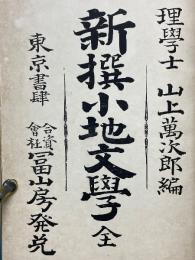 理學士 山上萬次郎編
新撰小地文學 全
東京書肆 合資會社 冨山房発兌